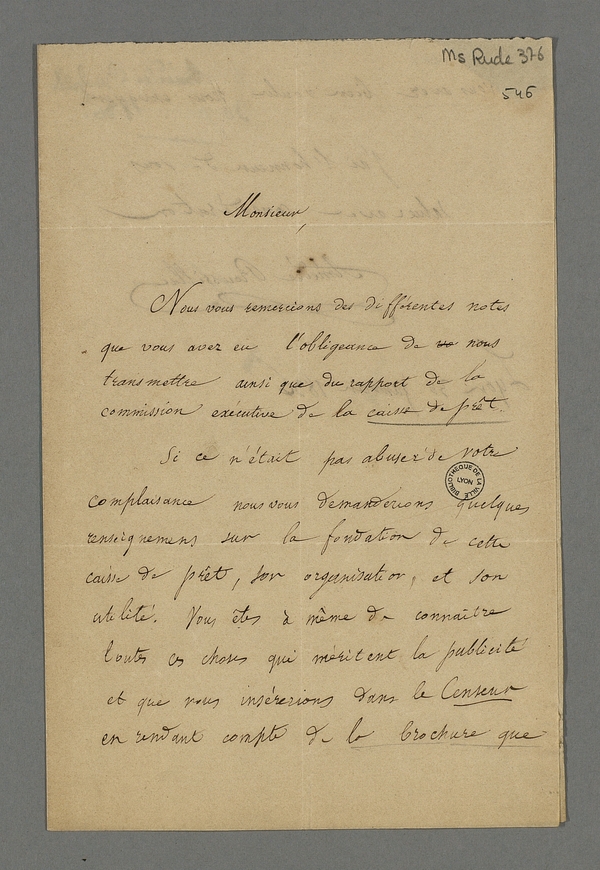 Ms Rude 376
546
Monsieur,
Nous vous remercions des différentes notes
que vous avez eu l'obligeance de vo nous
transmettre ainsi que du rapport de la
commission exécutive de la caisse de prêt.
Si ce n'était pas abuser de votre
complaisance nous vous demanderions quelques
renseignemens sur la fondation de cette
caisse de prêt, son organisation, et son
utilité. Vous êtes à même de connaître
toutes ces choses qui méritent la publicité
et que nous insérerions dans le Censeur
en rendant compte de la brochure que
BIBLIOTHEQUE DE LA VILLE
LYON